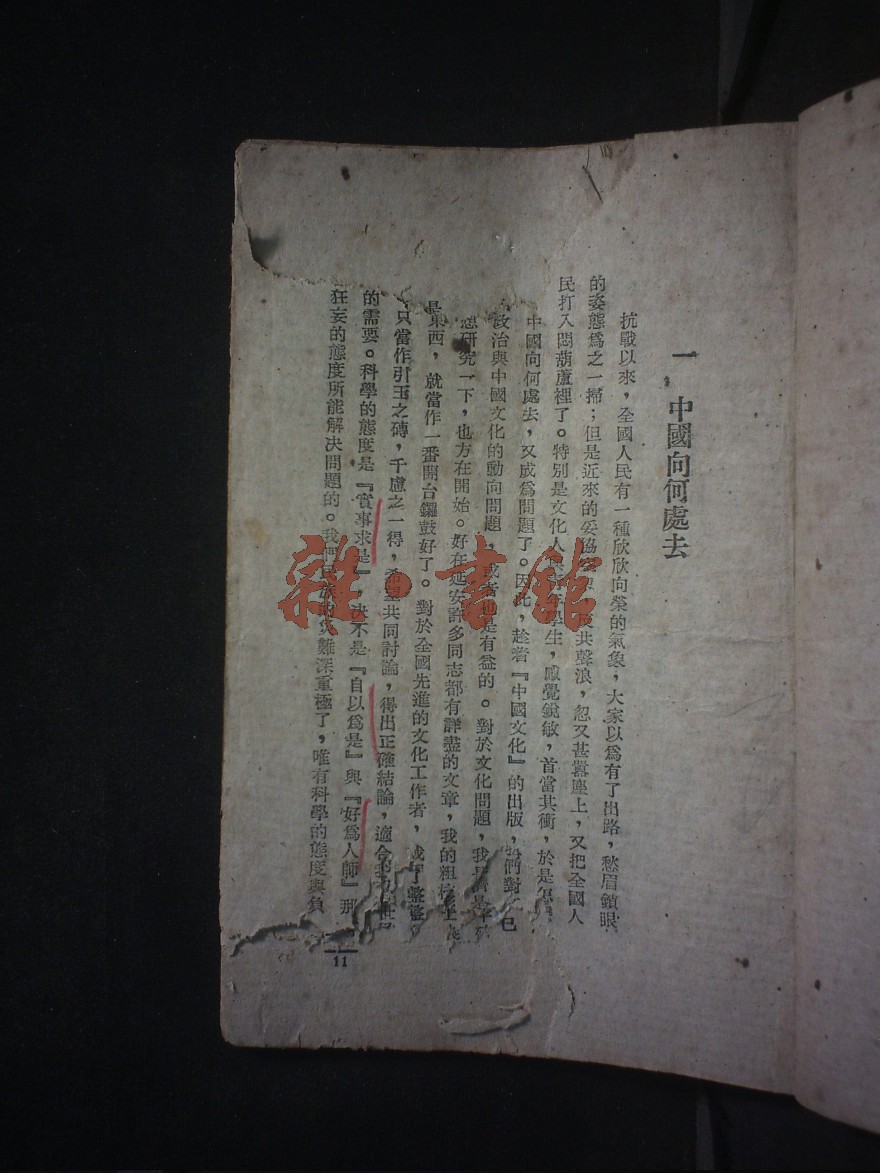 一 中國向何處去
抗戰以來，全國人民有一種欣欣向榮的氣象，大家以爲有了出路，愁眉鎖眼
的姿態爲之一掃；但是近來的妥協 共聲浪，忽又甚囂塵上，又把全國人
民打入悶葫蘆裡了。特別是文化人 學生，感覺銳敏，首當其衝，於是怎
中國向何處去，又成爲問題了。因此，趁着『中國文化』的出版， 們對
政治與中國文化的動向問題，或者也是有益的。對於文化問題，我是
想研究一下，也方在開始。好在延安許多同志都有詳盡的文章，我的粗
東西，就當作一番開台鑼鼓好了。對於全國先進的文化工作者，
只當作引玉之磚，千慮之一得，希望共同討論，得出正確結論，適合
的需要。科學的態度是『實事求是』，決不是『自以爲是』與『好爲人師』那
狂妄的態度所能解決問題的。我們民族的 難深重極了，唯有科學的態度與負
11
雜·書館